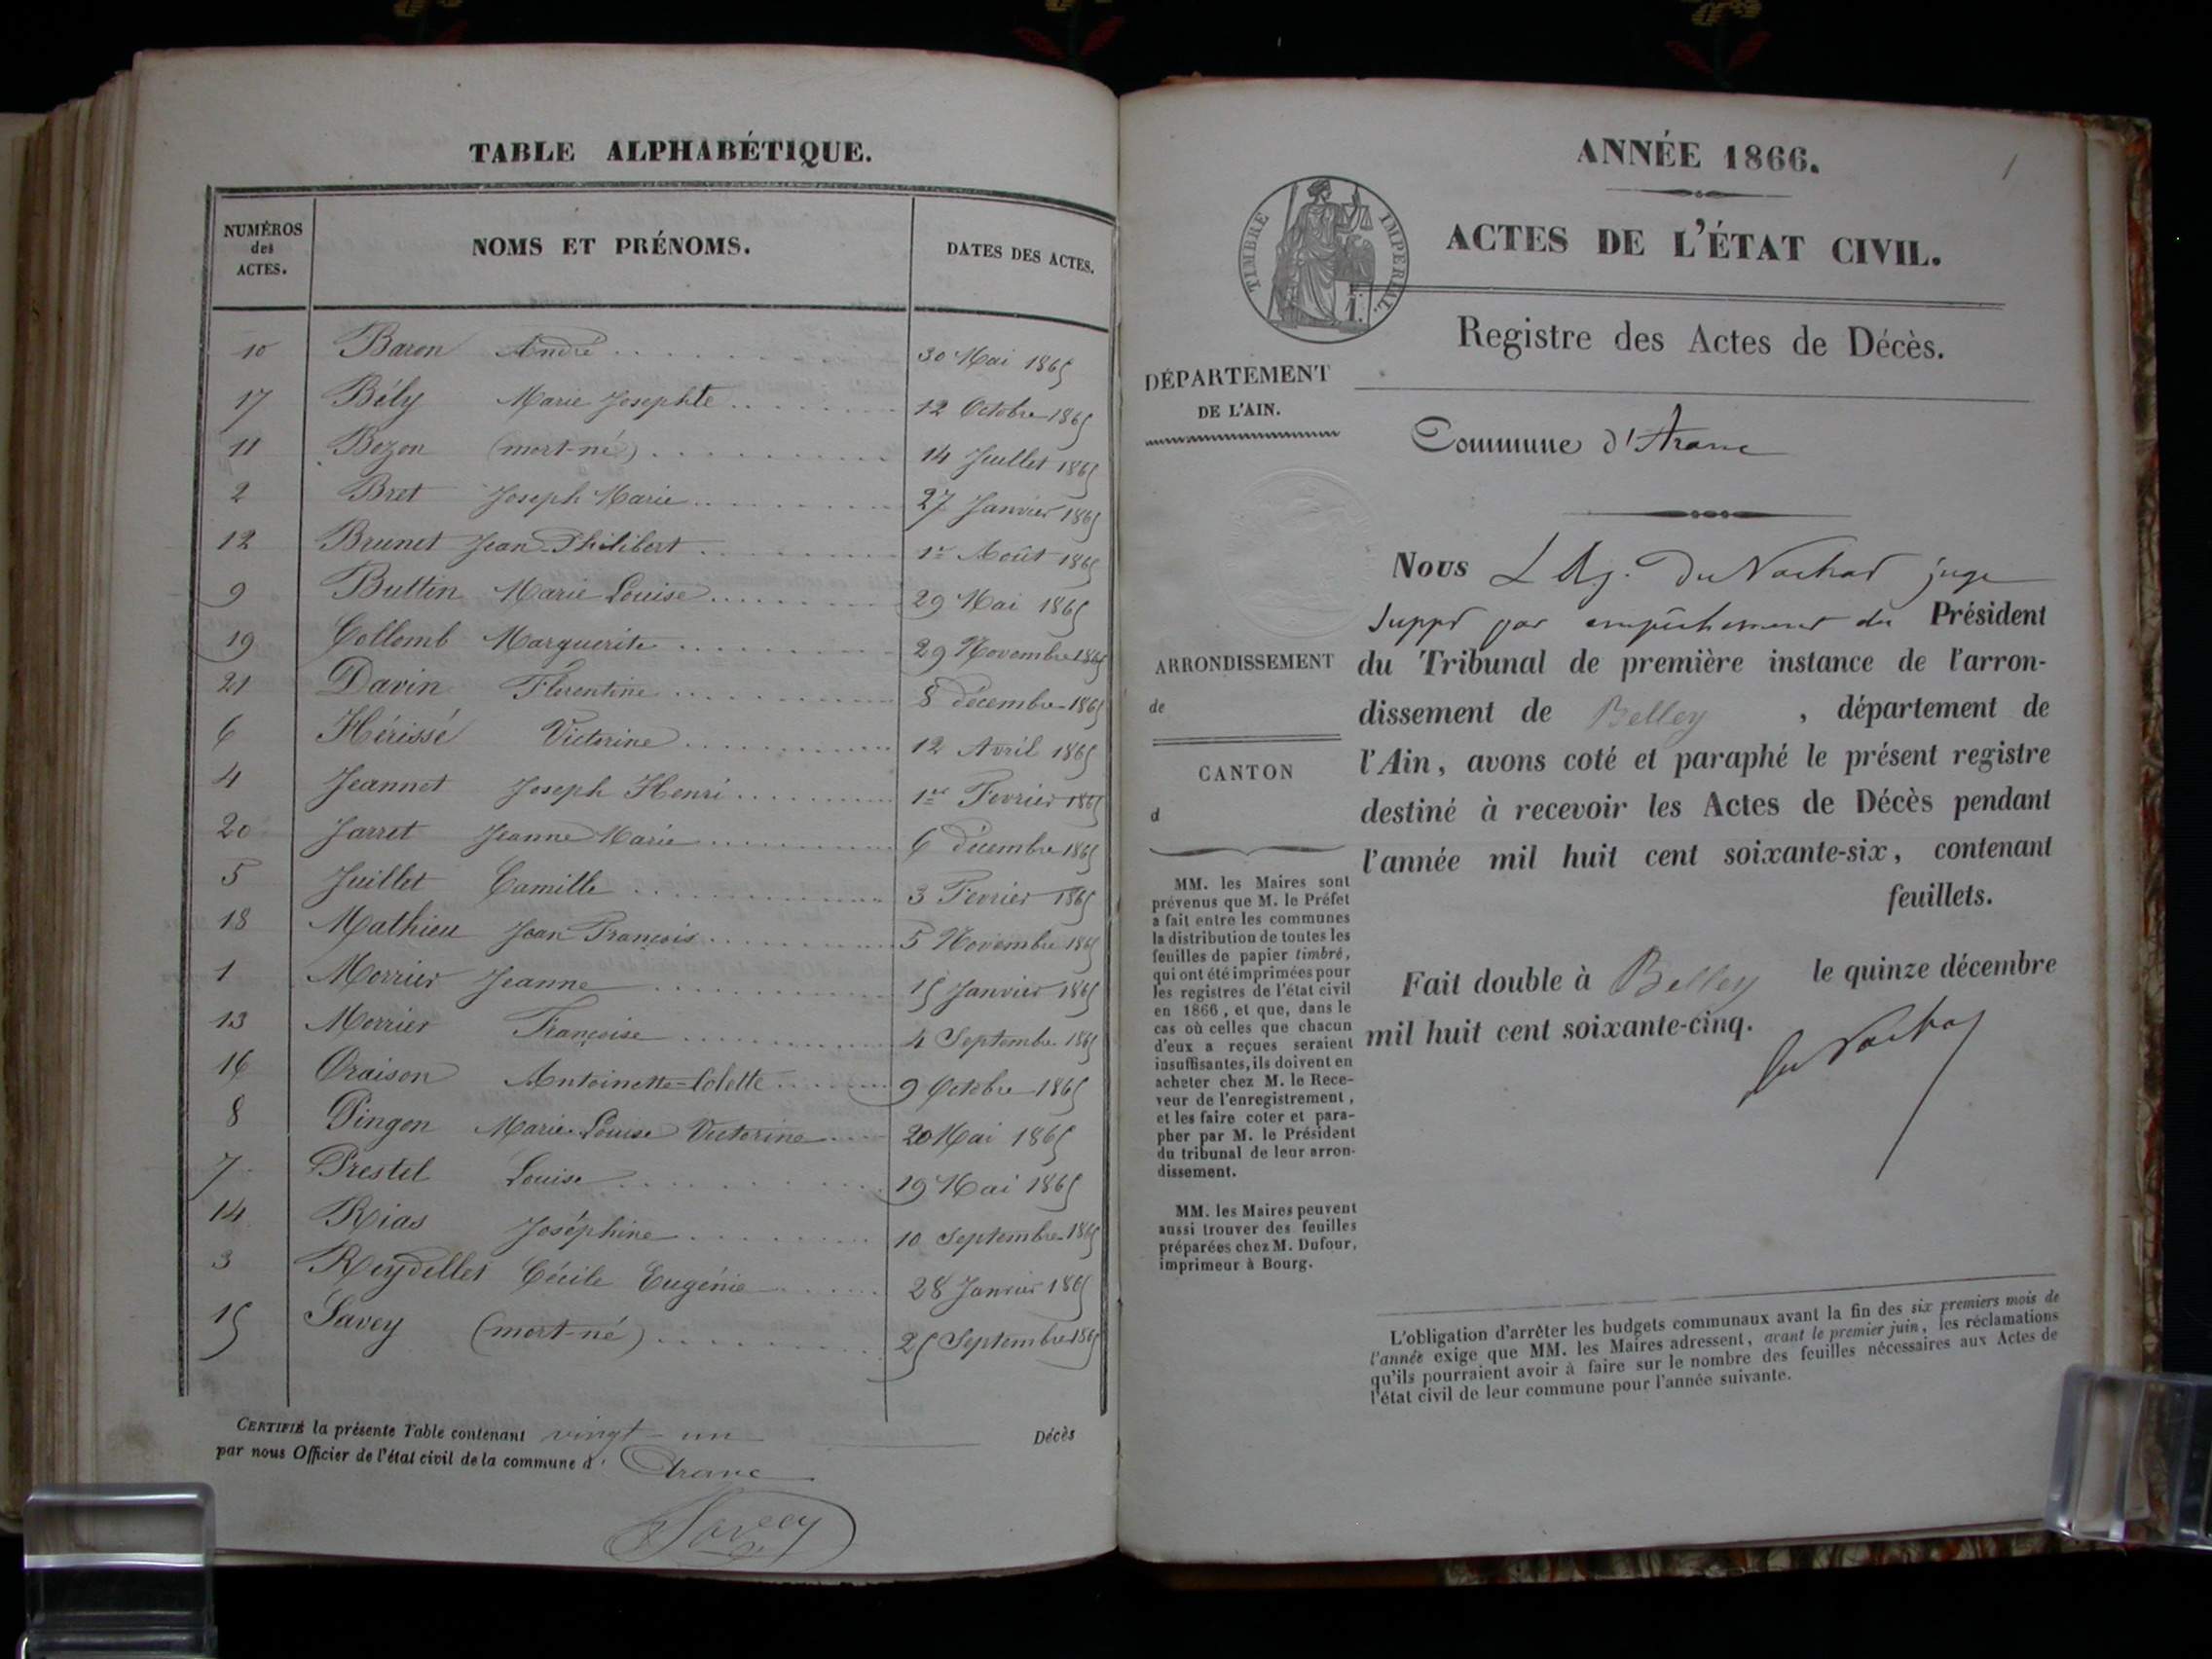 TABLE ALPHABÉTIQUE.
NUMÉROS des ACTES. NOMS ET PRÉNOMS. DATES DES ACTES.
10 Baron André 30 Mai 1865
17 Bély Marie Josephte 12 Octobre 1865
11 Bozon (mort-né) 14 Juillet 1865
2 Bret Joseph Marie 27 Janvier 1865
12 Brunet Jean Philibert 1er Août 1865
9 Buttin Marie Louise 29 Mai 1865
19 Collomb Marguerite 29 Novembre 1865
21 Davin Florentine 8 décembre 1865
6 Hérissé Victorine 12 Avril 1865
4 Jeannet Joseph Henri 1er Fevrier 1865
20 Jarret Jeanne Marie 6 décembre 1865
5 Juillet Camille 3 Fevrier 1865
18 Mathieu Jean François 5 Novembre 1865
1 Morrier Jeanne 15 Janvier 1865
13 Morrier Françoise 4 Septembre 1865
16 Oraison Antoinette-Colette 9 Octobre 1865
8 Pingon Marie Louise Victorine 20 Mai 1865
7 Prestel Louise 19 Mai 1865
14 Rias Joséphine 10 Septembre 1865
3 Reydellet Cécile Eugénie 28 Janvier 1865
15 Savey (mort-né) 25 Septembre 1865
CERTIFIÉ la présente Table contenant vingt-un Décès
par nous Officier de l'état civil de la commune d' Aranc
Savey
1
ANNÉE 1866.
TIMBRE IMPERIAL.
ACTES DE L'ÉTAT CIVIL.
Registre des Actes de Décès.
DÉPARTEMENT
DE L'AIN.
Commune d'Aranc
Nous du Nachat juge
suppt par empêchement du Président
du Tribunal de première instance de l'arron-
dissement de Belley , département de
l'Ain, avons coté et paraphé le présent registre
destiné à recevoir les Actes de Décès pendant
l'année mil huit cent soixante-six, contenant
feuillets.
Fait double à Belley le quinze décembre
mil huit cent soixante-cinq.
du Nachat
ARRONDISSEMENT
de
CANTON
d
MM. les Maires sont
prévenus que M. le Préfet
a fait entre les communes
la distribution de toutes les
feuilles de papier timbré,
qui ont été imprimées pour
les registres de l'état civil
en 1866, et que, dans le
cas où celles que chacun
d'eux a reçues seraient
insuffisantes, ils doivent en
acheter chez M. le Rece-
veur de l'enregistrement,
et les faire coter et para-
pher par M. le Président
du tribunal de leur arron-
dissement.
MM. les Maires peuvent
aussi trouver des feuilles
préparées chez M. Dufour,
imprimeur à Bourg.
L'obligation d'arrêter les budgets communaux avant la fin des six premiers mois de
l'année exige que MM. les Maires adressent, avant le premier juin, les réclamations
qu'ils pourraient avoir à faire sur le nombre des feuilles nécessaires aux Actes de
l'état civil de leur commune pour l'année suivante.